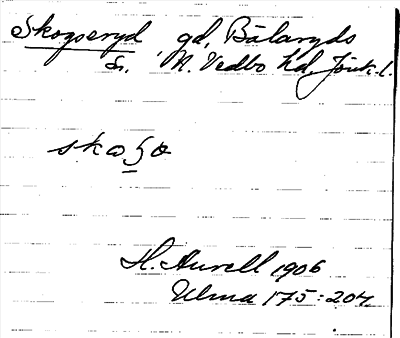 Skogseryd gd, Bälaryds
sn. N. Vedbo hd, Jönk. l.
skoʒə
H. Aurell 1906
Ulma 175:204